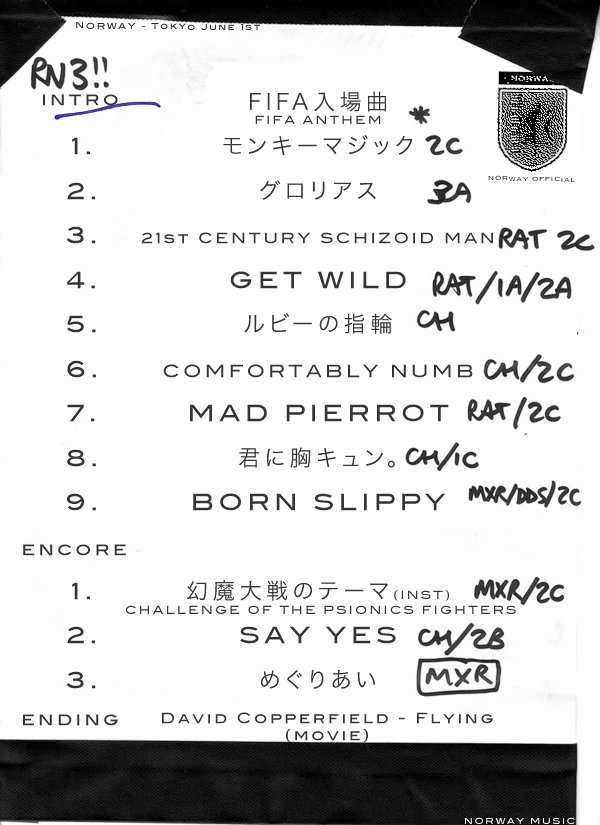 NORWAY - TOKYO JUNE 1ST
RN3!!
INTRO FIFA入場曲
FIFA ANTHEM *
NORWAY
NORWAY OFFICIAL
1. モンキーマジック 2C
2. グロリアス 3A
3. 21ST CENTURY SCHIZOID MAN RAT 2C
4. GET WILD RAT/1A/2A
5. ルビーの指輪 CH
6. COMFORTABLY NUMB CH/2C
7. MAD PIERROT RAT/2C
8. 君に胸キュン。 CH/1C
9. BORN SLIPPY MXR/DDS/2C
ENCORE
1. 幻魔大戦のテーマ(INST) MXR/2C
CHALLENGE OF THE PSIONICS FIGHTERS
2. SAY YES CH/2B
3. めぐりあい MXR
ENDING DAVID COPPERFIELD - FLYING
(MOVIE)
NORWAY MUSIC